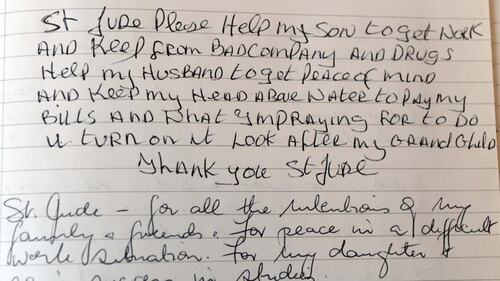 St Jude Please Help my Son to get Work
AND Keep from BAD Company AND DRUGS
Help my HUSBAND to get Peace of MIND
AND Keep my HeAD ABove Water to Pay my
Bills AND What I'm PRAYING FOR to DO
U turn on it Look After my GRAND Child
Thank you St Jude
St. Jude - for all the intentions of my
family & friends. For peace in a difficult
work situation. For my daughter
success in studies.